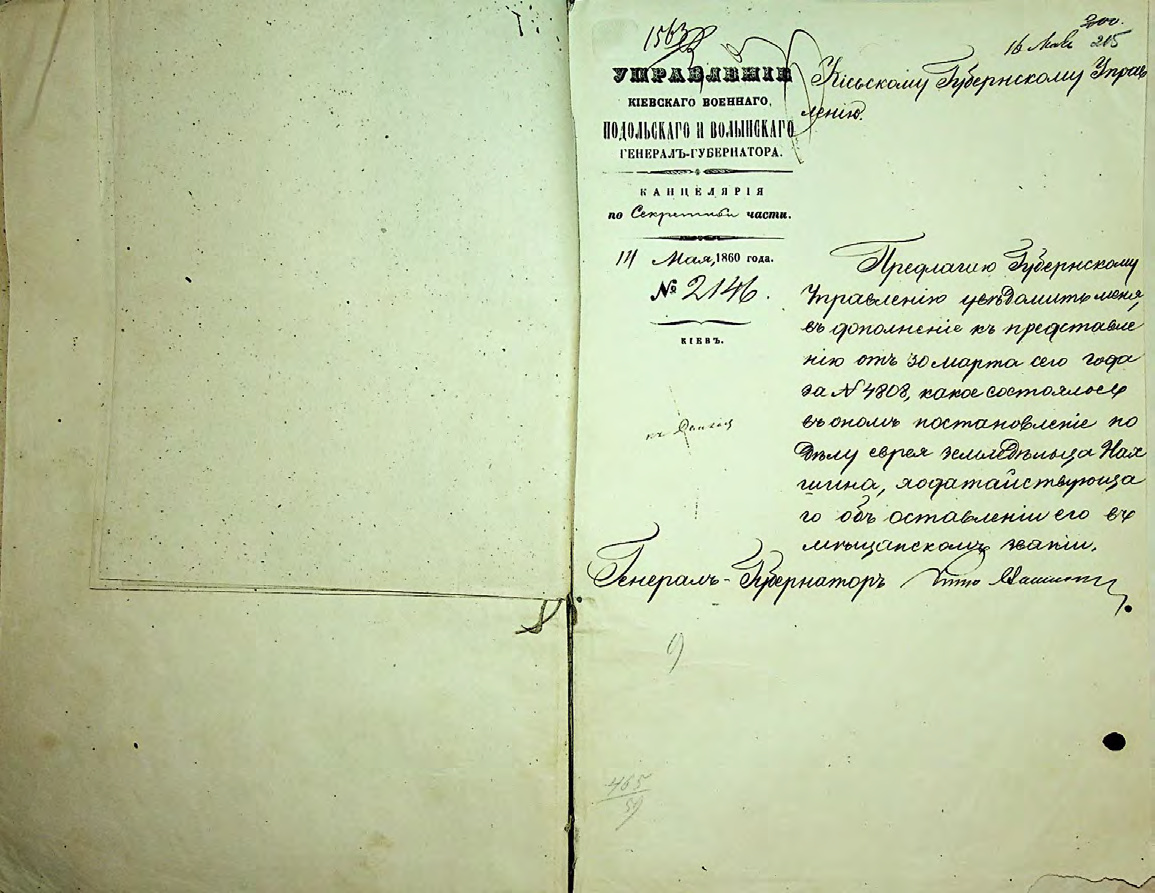 1563
200.
16 Мая 215
УПРАВЛЕНІЕ
КІЕВСКАГО ВОЕННАГО,
ПОДОЛЬСКАГО И ВОЛЫНСКАГО
ГЕНЕРАЛЪ-ГУБЕРНАТОРА.
КАНЦЕЛЯРІЯ
по Секретной части.
Мая, 1860 года.
№ 2146.
КІЕВЪ.
Кіевскому Губернскому Прав
ленію.
Предлагаю Губернскому
Правленію увѣдомить меня,
въ дополненіе къ представле
нію отъ 30 марта сего года
за N 4808, какое состоялось
въ ономъ постановленіе по
дѣлу еврея земледѣльца Нах
шина, ходатайствующа
го объ оставленіи его въ
мѣщанскомъ званіи.
Генералъ-Губернаторъ
465
59